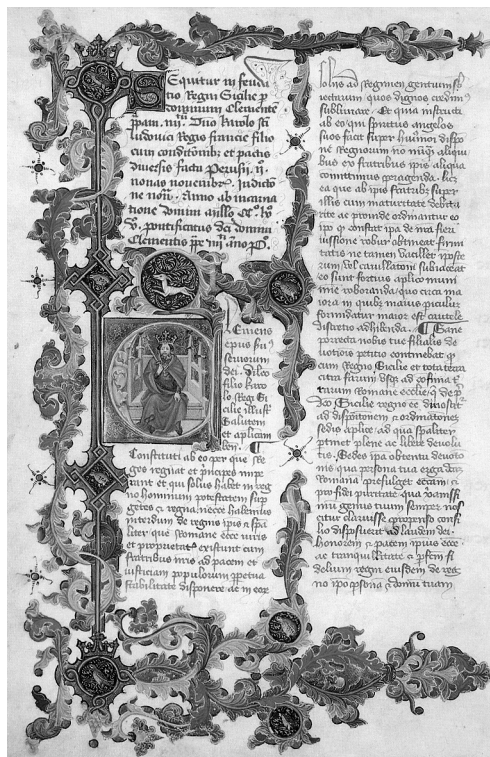 Sequitur in feuda
tio Regni Siglie p
dominum Clemente
ppam. iiij. Dno karolo sci
ludovici Regis francie filio
cum conditoib; et pactis
diversis factu Perusij. ij.
nonas novembr. Indictio
ne non. Anno ab incarna
tione domini millo cc. lx
v. pontificatus dci domini
Clementis pp iiij. anno p.
Clemens
epus s
servorum
dei. dilco
filio karo
lo Regi Si
cilie illust
Salutem
et aplicam
ben.
Constituti ab eo per que Re
ges regnat et principes impe
rant et qui solus habet in reg
no hominum potestatem sup
gentes et regna. necesse habemus
interdum de regnis ipis
liter que Romane ecce iuris
et proprietatis existunt cum
fratribus nris ad pacem et
iusticiam populorum ppetua
stabilitate disponere ac in eor
ad Regimen gentium
iectarum quos dignos credim
sublimare. Et quia instituta
ab eo qui spiritus angelos
suos facit super huiusmodi dispo
ne Regnorum no nuq aliqui
bus ex fratribus ipis aliqua
comittimus peragenda. licet
ea que ab ipis fratrib; super
illis cum maturitate debita
rite ac proinde ordinantur eo
ipo q constat ipa de nra
iussione robur obtineat firmi
tatis ne tamen vacillet
rum vel cavillatoni subiaceat
eo sunt fortius aplico muni
mine roboranda quo circa ma
iora in quib; maius piculum
formidatur maior est cautele
discretio adhibenda. Sane
porrecta nobis tue filialis de
votionis petitio continebat q
cum Regno Sicilie et tota terra
citra farum usq ad cofinia t
rarum Romane ecclie
dco Sicilie regno
ad dispoitionem et ordinatoez
sedis aplice. ad qua spaliter
ptinet plene ac libere devolu
tis. Sedes ipa obtentu devotio
nis qua persona tua erga
Romana presulget eccam
pro fidei puritate qua
mu genus tuum semper nos
citur claruisse propenso consi
lio disposuerat ad laudem dei
honorem et pacem ipius ecce
ac tranquillitate fi
delium regni eiusdem de reg
no ipo psona domui tuam